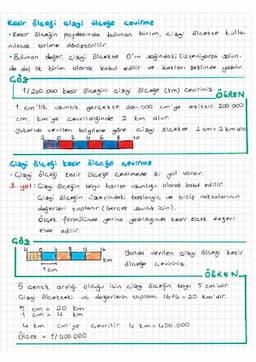 Kesir ölçeği çizgi ölçeğe çevirme
• Kesir ölçeğin paydasında bulunan birim, çizgi ölçekte kulla-
nılacak birime dönüştürülür.
• Bulunan değer, çizgi ölçekte 0'ın sağındaki
da ilk birim olarak kabul edilir ve katları şeklinde yazılır.
GÖZ
1/200.000 kesir ölçeğini çizgi ölçeğe (km) çeviriniz.
ÖĞREN
1 cm'lik uzunluk gerçekte 200.000 cm'ye eşittir. 200.000
cm, km'ye çevrildiğinde 2 km olur.
Yukarıda verilen bilgilere göre çizgi ölçekte 1 cm = 2 km'dir.
Çizgi ölçeği kesir ölçeğe çevirme
• Çizgi ölçeği kesir ölçeğe çevirmede iki yol vardır.
1. yol: Çizgi ölçeğin boyu harita uzunluğu olarak kabul edilir.
Çizgi ölçeğin üzerindeki başlangıç ve bitiş noktalarının
değerleri toplanır (gerçek uzunluk için).
Ölçek formülünde yerine yazıldığında kesir ölçek değeri
elde edilir.
GÖZ
4 0 4 8 12 16
km
1 cm
Yanda verilen çizgi ölçeği kesir
ölçeğe çeviriniz.
ÖĞREN
5 cm'dir.
Çizgi ölçekteki uç değerlerin toplamı 16+4 = 20 km'dir.
5 cm = 20 km
1 cm = 4 km
4 km cm'ye çevrilir 4 km = 400.000
Ölçek = 1/400.000